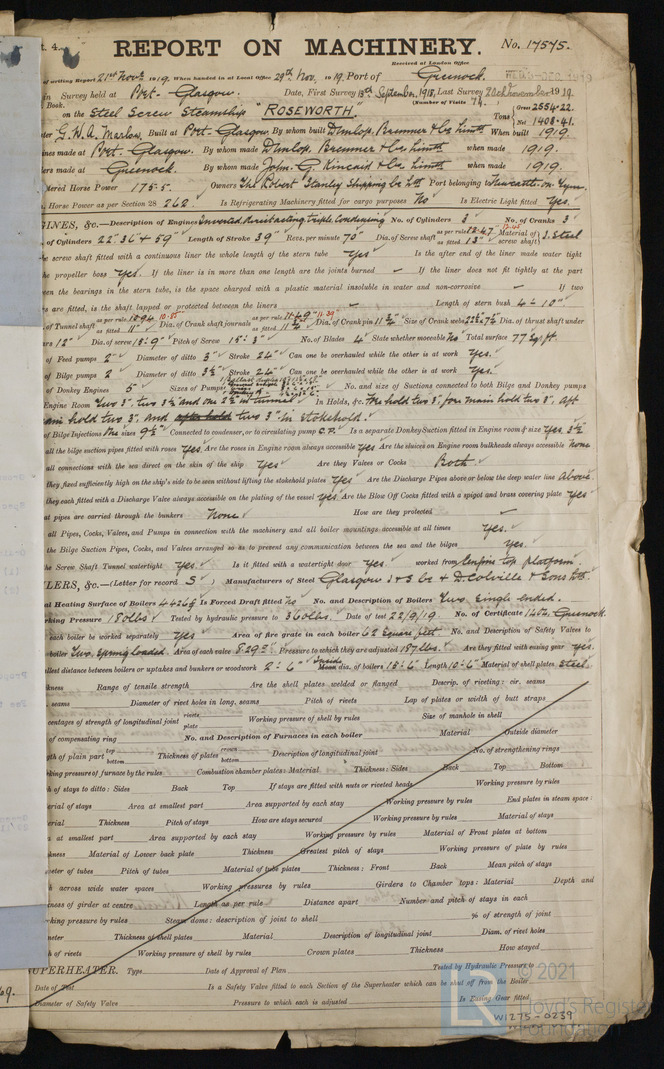 t. 4.
REPORT ON MACHINERY.
No. 17575.
Received at London Office
WED. 3 DEC 1919
of writing Report 21st Novr. 1919. When handed in at Local Office 29th Nov. 1919. Port of Greenock.
in Survey held at Port-Glasgow. Date, First Survey 15th September, 1918, Last Survey 22nd November 1919.
Book. (Number of Visits 74.)
on the Steel Screw Steamship "ROSEWORTH." Tons Gross 2554.22. Net 1408.41.
ter G. W. A. Marlow. Built at Port-Glasgow By whom built Dunlop, Bremner & Co. Limtd When built 1919
ines made at Port-Glasgow. By whom made Dunlop, Bremner & Co. Limtd when made 1919.
ers made at Greenock. By whom made John. G. Kincaid & Co. Limtd when made 1919.
tered Horse Power 175.5. Owners The Robert Stanley Shipping Co Ltd Port belonging to Newcastle-on-Tyne.
Horse Power as per Section 28 262. Is Refrigerating Machinery fitted for cargo purposes No Is Electric Light fitted Yes.
GINES, &c.—Description of Engines Inverted, Direct acting, triple, Condensing No. of Cylinders 3 No. of Cranks 3
of Cylinders 22" 36" & 59" Length of Stroke 39" Revs. per minute 70 Dia. of Screw shaft as per rule 12.47" as fitted 13" Material of screw shaft Steel
he screw shaft fitted with a continuous liner the whole length of the stern tube Yes Is the after end of the liner made water tight
he propeller boss Yes. If the liner is in more than one length are the joints burned — If the liner does not fit tightly at the part
een the bearings in the stern tube, is the space charged with a plastic material insoluble in water and non-corrosive — If two
rs are fitted, is the shaft lapped or protected between the liners — Length of stern bush 4'-10"
of Tunnel shaft as per rule 10.94 10.85 as fitted 11" Dia. of Crank shaft journals as per rule 11.49" 11.39 as fitted 11¾" Dia. of Crank pin 11¾" Size of Crank webs 22½"x7½" Dia. of thrust shaft under
rs 12" Dia. of screw 15'-9" Pitch of Screw 15'-3" No. of Blades 4 State whether moveable No Total surface 77 Sq ft.
of Feed pumps 2 Diameter of ditto 3" Stroke 24" Can one be overhauled while the other is at work Yes.
of Bilge pumps 2 Diameter of ditto 3½" Stroke 24" Can one be overhauled while the other is at work Yes.
of Donkey Engines 5 Sizes of Pumps No. and size of Suctions connected to both Bilge and Donkey pumps
Engine Room Two 3", two 3½" and one 2½" in tunnel In Holds, &c. Fore hold two 3", fore main hold two 3", aft
main hold two 3", and two 3" in stokehold.
of Bilge Injections One sizes 9½" Connected to condenser, or to circulating pump C.P. Is a separate Donkey Suction fitted in Engine room & size Yes 3½"
all the bilge suction pipes fitted with roses Yes. Are the roses in Engine room always accessible Yes. Are the sluices on Engine room bulkheads always accessible None
all connections with the sea direct on the skin of the ship Yes Are they Valves or Cocks Both
they fixed sufficiently high on the ship's side to be seen without lifting the stokehold plates Yes Are the Discharge Pipes above or below the deep water line Above
they each fitted with a Discharge Valve always accessible on the plating of the vessel Yes. Are the Blow Off Cocks fitted with a spigot and brass covering plate Yes
at pipes are carried through the bunkers None How are they protected —
all Pipes, Cocks, Valves, and Pumps in connection with the machinery and all boiler mountings accessible at all times Yes.
the Bilge Suction Pipes, Cocks, and Valves arranged so as to prevent any communication between the sea and the bilges Yes.
he Screw Shaft Tunnel watertight Yes. Is it fitted with a watertight door Yes. worked from Engine top Platform
LERS, &c.—(Letter for record S) Manufacturers of Steel Glasgow I & S Co & D. Colville & Sons Ltd.
al Heating Surface of Boilers 4426 Is Forced Draft fitted No No. and Description of Boilers Two Single ended.
rking Pressure 180 lbs Tested by hydraulic pressure to 360 lbs. Date of test 22/9/19 No. of Certificate 1402, Greenock.
each boiler be worked separately Yes Area of fire grate in each boiler 62 square feet No. and Description of Safety Valves to
boiler Two, Spring loaded. Area of each valve 8.29 Pressure to which they are adjusted 187 lbs. Are they fitted with easing gear Yes.
llest distance between boilers or uptakes and bunkers or woodwork 2'-6" Inside Mean dia. of boilers 15'-6" Length 10'-6" Material of shell plates Steel
kness Range of tensile strength Are the shell plates welded or flanged Descrip. of riveting: cir. seams
seams Diameter of rivet holes in long. seams Pitch of rivets Lap of plates or width of butt straps
centages of strength of longitudinal joint rivets plate Working pressure of shell by rules Size of manhole in shell
of compensating ring No. and Description of Furnaces in each boiler Material Outside diameter
gth of plain part top bottom Thickness of plates crown bottom Description of longitudinal joint No. of strengthening rings
king pressure of furnace by the rules Combustion chamber plates: Material Thickness: Sides Back Top Bottom
h of stays to ditto: Sides Back Top If stays are fitted with nuts or riveted heads Working pressure by rules
erial of stays Area at smallest part Area supported by each stay Working pressure by rules End plates in steam space:
erial Thickness Pitch of stays How are stays secured Working pressure by rules Material of stays
a at smallest part Area supported by each stay Working pressure by rules Material of Front plates at bottom
kness Material of Lower back plate Thickness Greatest pitch of stays Working pressure of plate by rules
meter of tubes Pitch of tubes Material of tube plates Thickness: Front Back Mean pitch of stays
h across wide water spaces Working pressures by rules Girders to Chamber tops: Material Depth and
kness of girder at centre Length as per rule Distance apart Number and pitch of stays in each
rking pressure by rules Steam dome: description of joint to shell % of strength of joint
meter Thickness of shell plates Material Description of longitudinal joint Diam. of rivet holes
h of rivets Working pressure of shell by rules Crown plates Thickness How stayed
SUPERHEATER. Type Date of Approval of Plan Tested by Hydraulic Pressure to
Date of Test Is a Safety Valve fitted to each Section of the Superheater which can be shut off from the Boiler
Diameter of Safety Valve Pressure to which each is adjusted Is Easing Gear fitted
69.
© 2021
Lloyd's Register
Foundation
W1275-0239